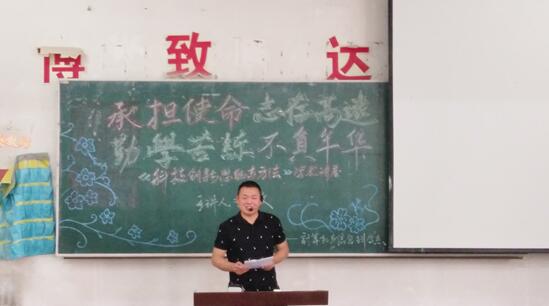 博 致 达
承担使命 志存高远
勤學苦练 不負年华
《科技创新思维与方法》
主讲人